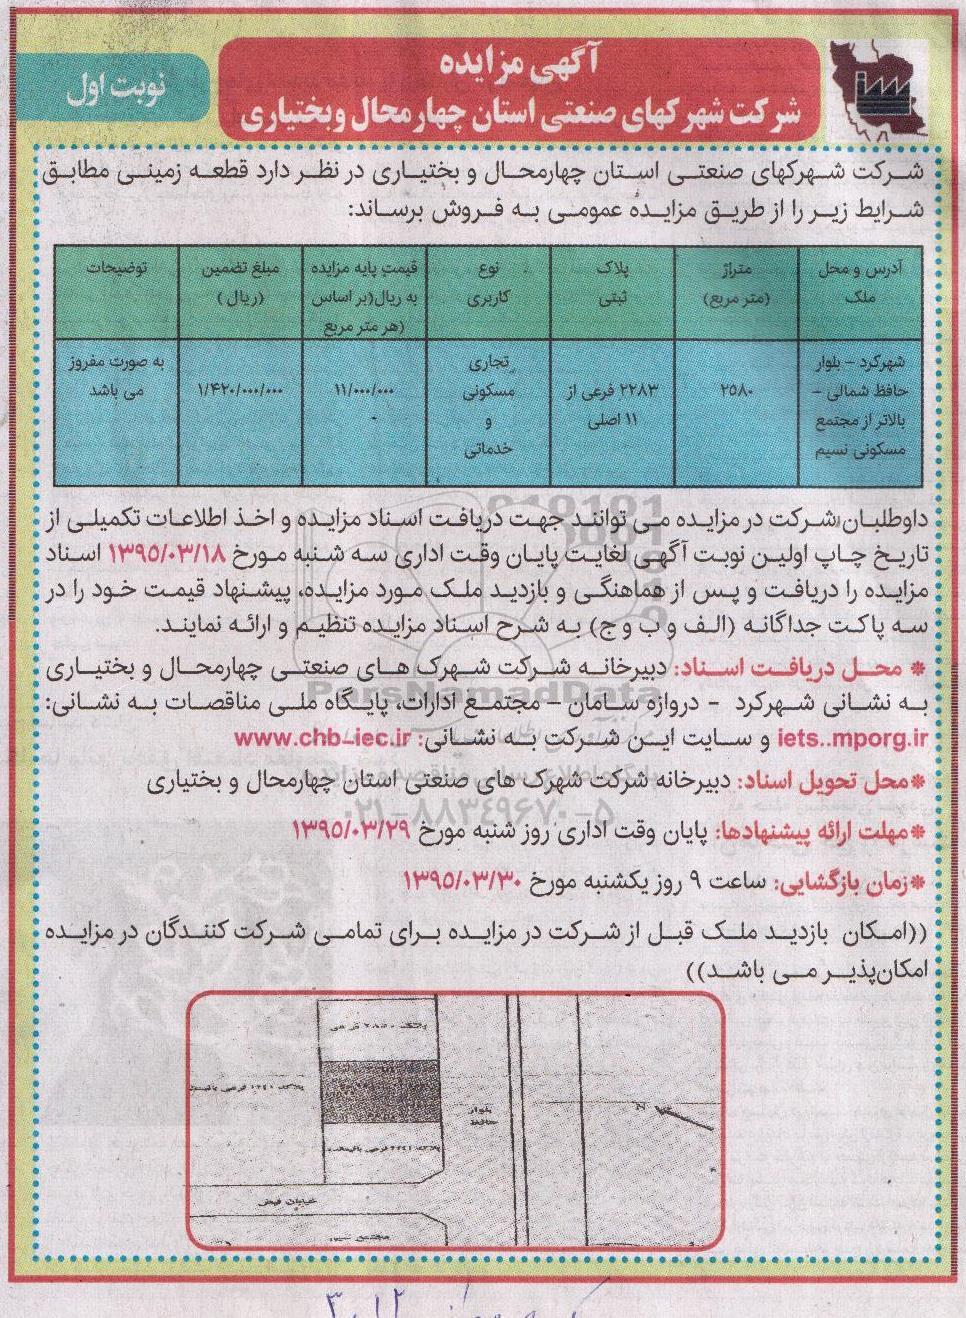 آگهی مزایده
شرکت شهرکهای صنعتی استان چهارمحال وبختیاری
نوبت اول
شرکت شهرکهای صنعتی استان چهارمحال و بختیاری در نظر دارد قطعه زمینی مطابق
شرایط زیر را از طریق مزایده عمومی به فروش برساند:
آدرس و محل ملک
متراژ (متر مربع)
پلاک ثبتی
نوع کاربری
قیمت پایه مزایده به ریال(بر اساس هر متر مربع)
مبلغ تضمین (ریال)
توضیحات
شهرکرد - بلوار حافظ شمالی - بالاتر از مجتمع مسکونی نسیم
۲۵۸۰
۲۲۸۳ فرعی از ۱۱ اصلی
تجاری مسکونی و خدماتی
۱۱/۰۰۰/۰۰۰ -
۱/۴۲۰/۰۰۰/۰۰۰
به صورت مفروز می باشد
داوطلبان شرکت در مزایده می توانند جهت دریافت اسناد مزایده و اخذ اطلاعات تکمیلی از
تاریخ چاپ اولین نوبت آگهی لغایت پایان وقت اداری سه شنبه مورخ ۱۳۹۵/۰۳/۱۸ اسناد
مزایده را دریافت و پس از هماهنگی و بازدید ملک مورد مزایده، پیشنهاد قیمت خود را در
سه پاکت جداگانه (الف و ب و ج) به شرح اسناد مزایده تنظیم و ارائه نمایند.
* محل دریافت اسناد: دبیرخانه شرکت شهرک های صنعتی چهارمحال و بختیاری
به نشانی شهرکرد - دروازه سامان - مجتمع ادارات، پایگاه ملی مناقصات به نشانی:
iets..mporg.ir و سایت این شرکت به نشانی: www.chb-iec.ir
*محل تحویل اسناد: دبیرخانه شرکت شهرک های صنعتی استان چهارمحال و بختیاری
*مهلت ارائه پیشنهادها: پایان وقت اداری روز شنبه مورخ ۱۳۹۵/۰۳/۲۹
*زمان بازگشایی: ساعت ۹ روز یکشنبه مورخ ۱۳۹۵/۰۳/۳۰
((امکان بازدید ملک قبل از شرکت در مزایده برای تمامی شرکت کنندگان در مزایده
امکان‌پذیر می باشد))
ParsNamadData
۰۲۱-۸۸۳۴۹۶۷۰-۵
بلوار
حافظ
N
خیابان فیض